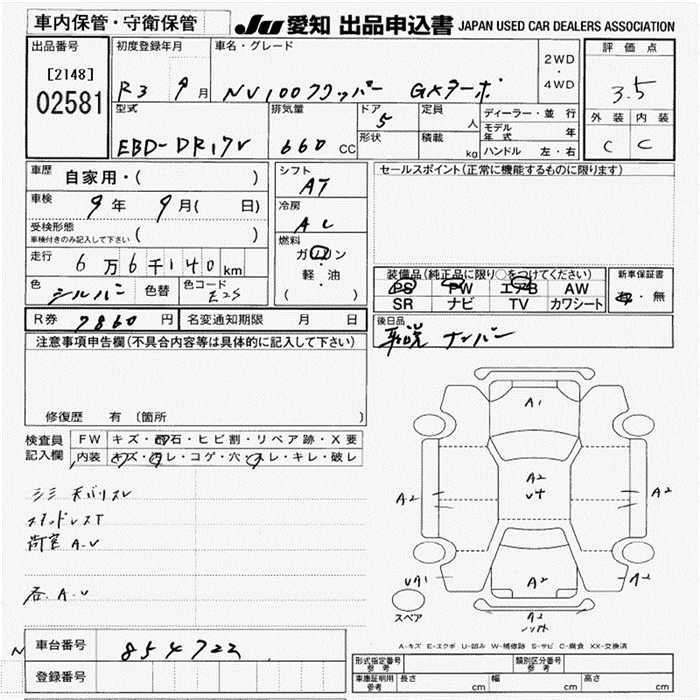 車内保管・守衛保管
JU 愛知 出品申込書 JAPAN USED CAR DEALERS ASSOCIATION
出品番号 初度登録年月 車名・グレード 評価点
[2148] 2WD・4WD
02581 R3 9月 NV100クリッパー GXターボ 3.5
型式 排気量 ドア 5 定員 人 ディーラー・並行 外装 内装
モデル年式 年
EBD-DR17V 660 CC 形状 積載 kg ハンドル 左・右 C C
車歴 自家用・( ) シフト AT セールスポイント(正常に機能するものに限ります)
車検 9年 9月( 日) 冷房 AC
受検形態 車検付きのみ記入して下さい ( ) 燃料 ガソリン・軽・油 ( )
走行 6万6千140km
色 シルバー 色替 色コード 装備品(純正品に限り○をつけてください) 新車保証書
PS PW エアB AW 有・無
SR ナビ TV カワシート
R券 7860円 名変通知期限 月 日 後日品
注意事項申告欄(不具合内容等は具体的に記入して下さい) ナンバー
修復歴 有 〔箇所 〕
検査員記入欄 FW キズ・飛石・ヒビ割・リペア跡・X要
内装 キズ・汚レ・コゲ・穴・スレ・キレ・破レ
A1
A2
A2 A2
荷室 A.U
各 A.U
UA1 A2
スペア A2
A-キズ E-エクボ U-凹み W-補修跡 S-サビ C-腐食 XX-交換済
車台番号 854722
登録番号
形式指定番号 参考 類別区分番号 参考
車庫証明用 参考 長さ cm 幅 cm 高さ cm